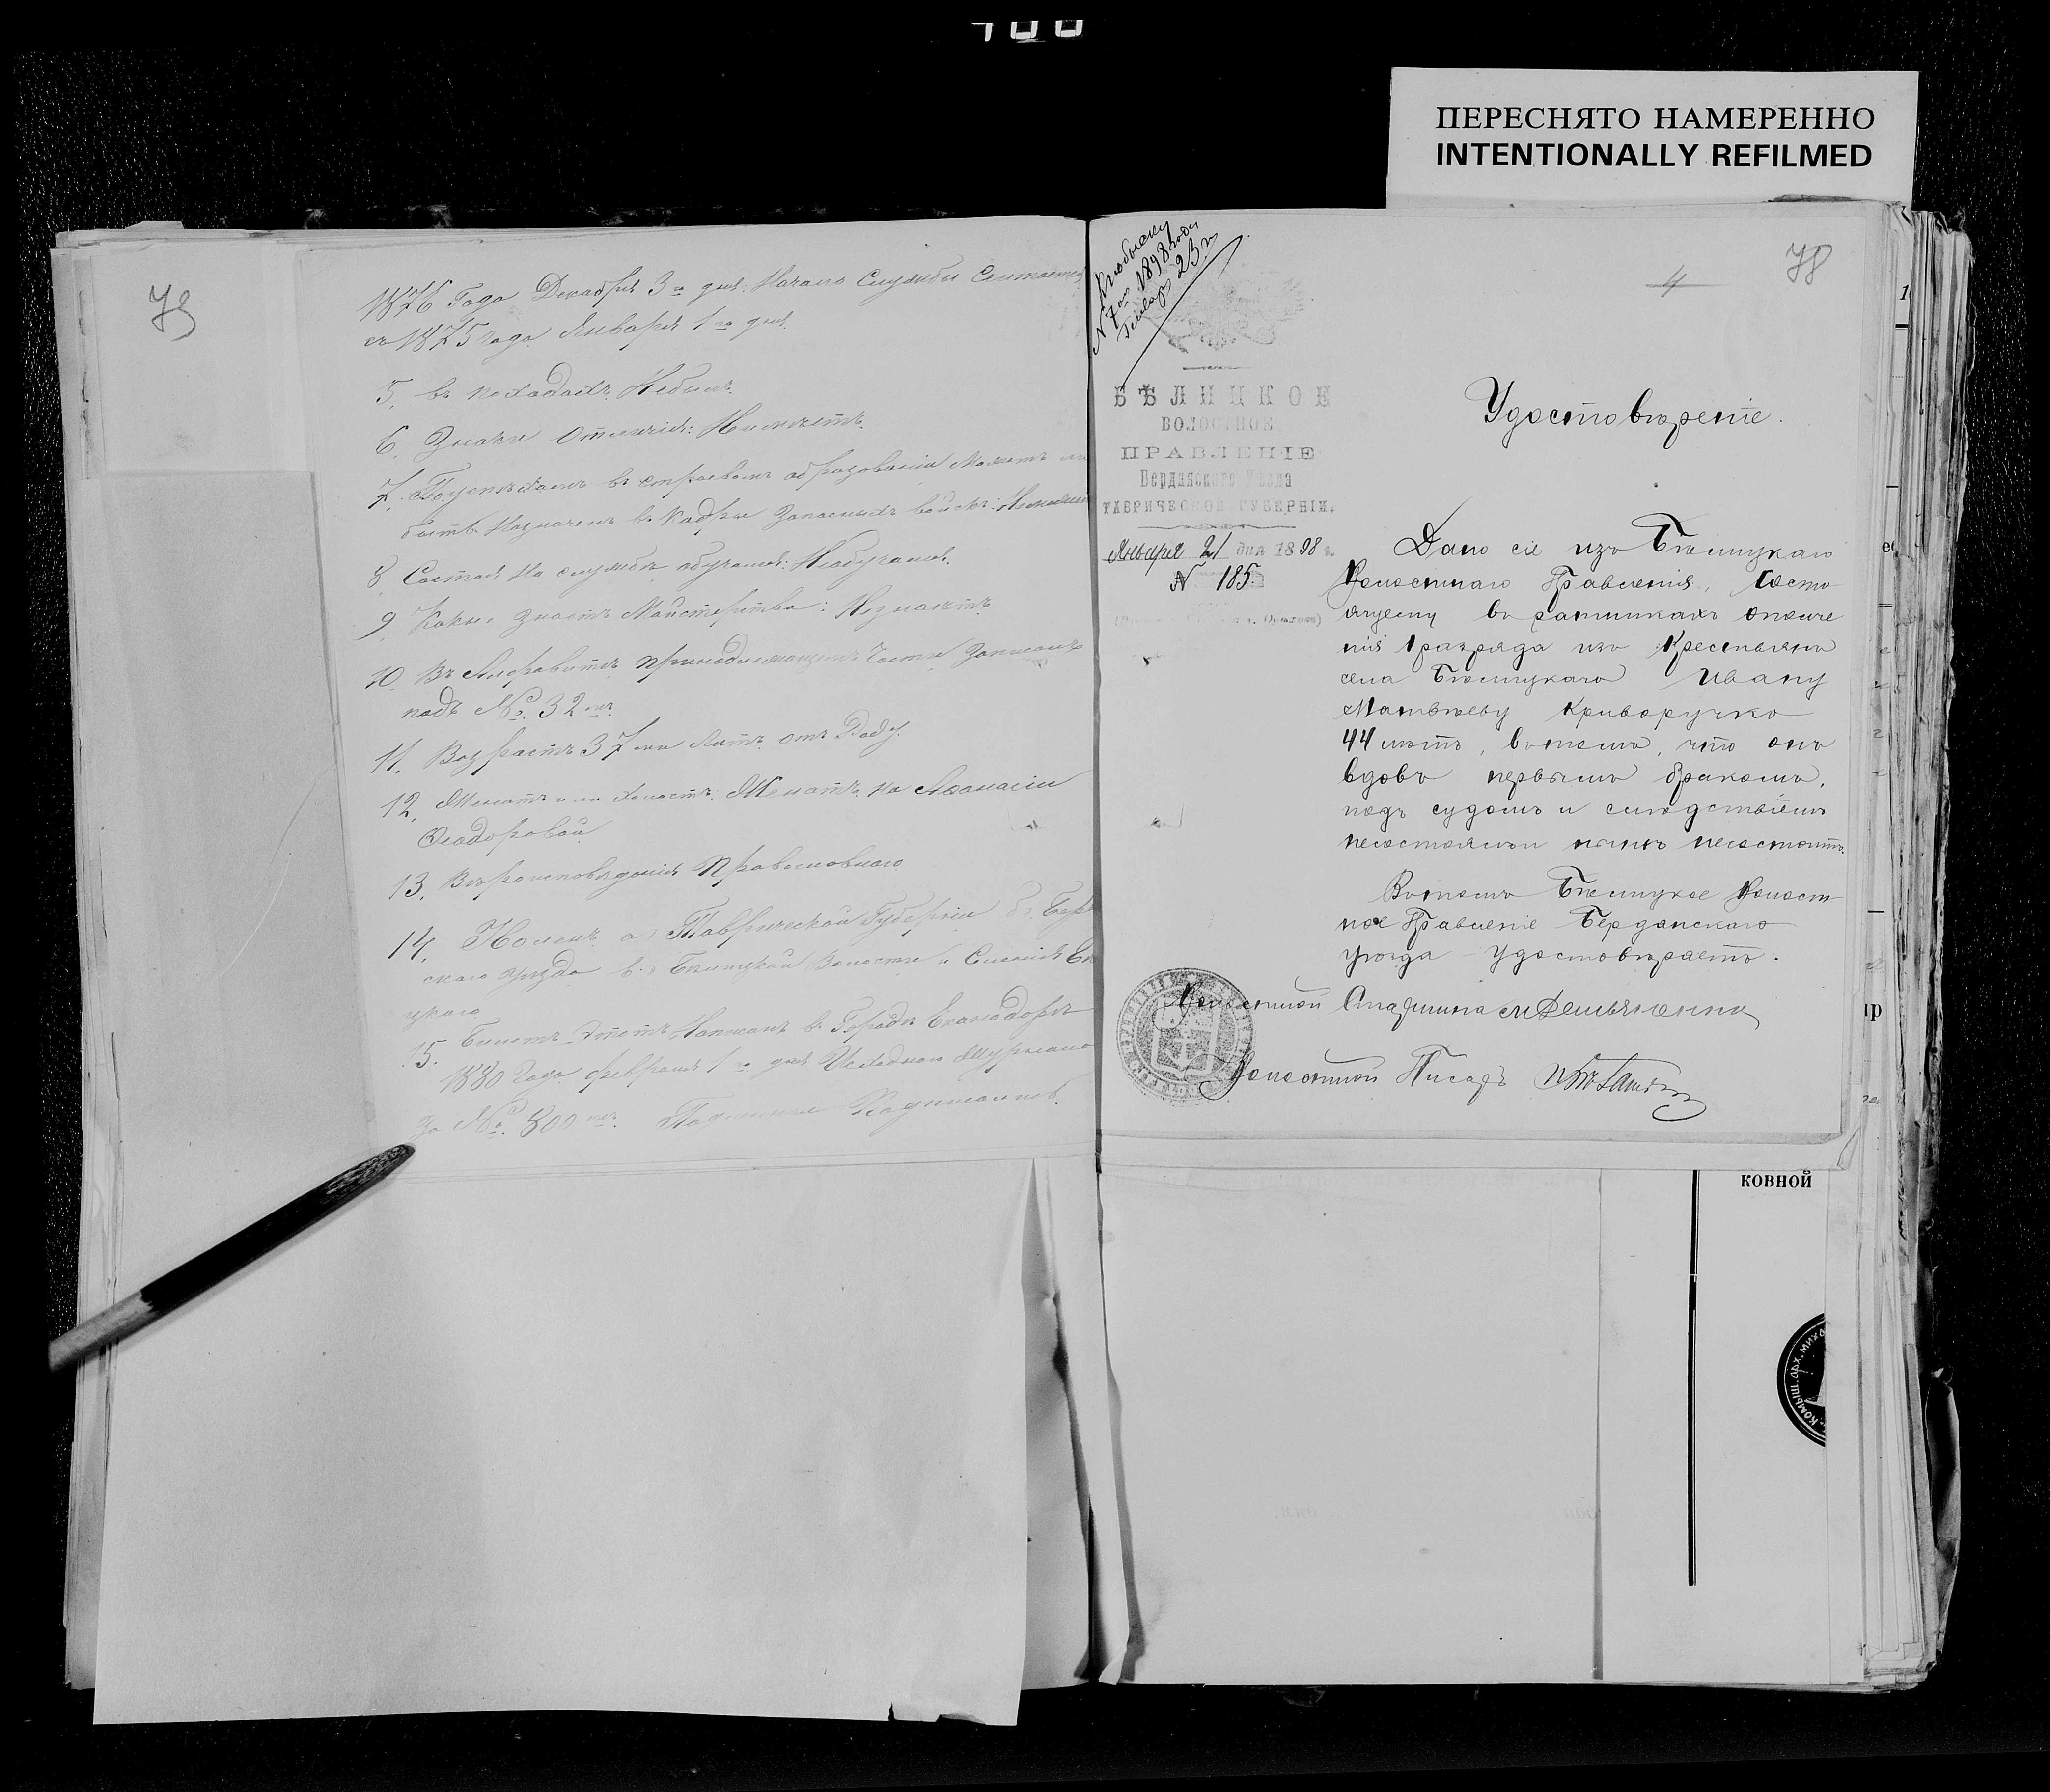 ПЕРЕСНЯТО НАМЕРЕННО
INTENTIONALLY REFILMED
78
1876 Года Декабря 3го дня. Начало Службы Считается
съ 1875 года Января 1го дня.
5. въ походахъ Небылъ.
6. Знаки Отличія: Неимѣетъ.
7. По успѣхамъ въ строевомъ образованіи Можетъ ли
быть Назначенъ въ Кадры Запасныхъ войскъ:
8. Состоя На службѣ обучался: Необучался.
9. Какія знаетъ Майстерства: Незнаетъ
10. Въ Алфавитъ принадлежащей Части Записанъ
подъ №. 32мъ.
11. Возрастъ 37ми Лѣтъ отъ Роду.
12. Женатъ или Холостъ. Женатъ. На Афанасіи
Феодоровой
13. Вѣроисповѣданія Православнаго
14. Таврической Губерніи
скаго уѣзда въ Бѣлицкой Волости и Селенія
цкаго
15. Билетъ Этотъ Написанъ въ Городѣ
1880 Года февраля 1го дня
За №. 800мъ. Подлинный Подписалъ
1898 года
Января 23
4
78
БѢЛИЦКОЕ
ВОЛОСТНОЕ
ПРАВЛЕНІЕ
Бердянскаго Уѣзда
ТАВРИЧЕСКОЙ ГУБЕРНІИ.
Января 21 дня 1898 г.
№ 185.
Удостовѣреніе.
Дано сіе изъ Бѣлицкаго
Волостнаго Правленія, Состо
ящему въ ратникахъ ополче
нія 1 разряда изъ Крестьянъ
села Бѣлицкаго Ивану
Матвѣеву Криворучко
44 лѣтъ, вътомъ, что онъ
вдовъ первымъ бракомъ,
подъ судомъ и слѣдствіемъ
несостоялъ и нынѣ несостоитъ.
Вътомъ Бѣлицкое Волост
ное Правленіе Бердянскаго
уѣзда Удостовѣряетъ.
Волостной Старшина
Волостной Писарь
КОВНОЙ